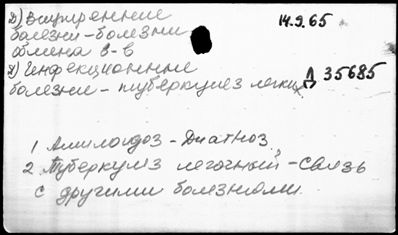 д) Внутренние 14.9.65
болезни - болезни
обмена в-в
ж) Инфекционные
болезни - туберкулез легких Д 35685
1 Амилоидоз - Диагноз
2 Туберкулез легочный, - Связь
с другими болезнями.